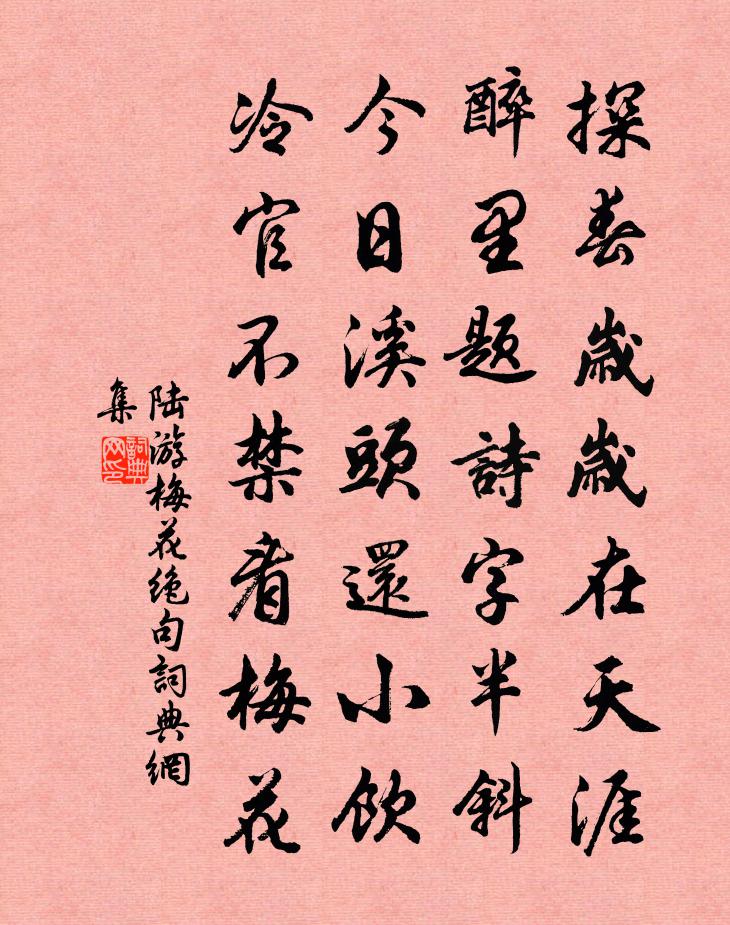 探春歲歲在天涯
醉里題詩字半斜
今日溪頭還小飲
冷官不禁看梅花
陆游梅花绝句詞典網
集
詞典
网印